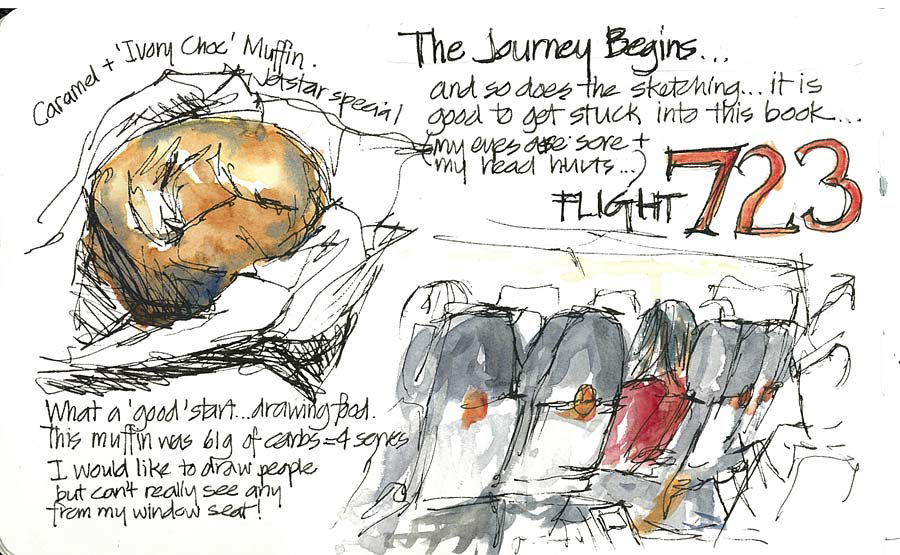 Caramel + 'Ivory Choc' Muffin.
Jetstar special
The Journey Begins...
and so does the sketching... it is
good to get stuck into this book...
(my eyes are sore +
my head hurts...)
FLIGHT 723
What a 'good' start... drawing food.
This muffin was 61g of carbs = 4 serves
I would like to draw people
but can't really see any
from my window seat!